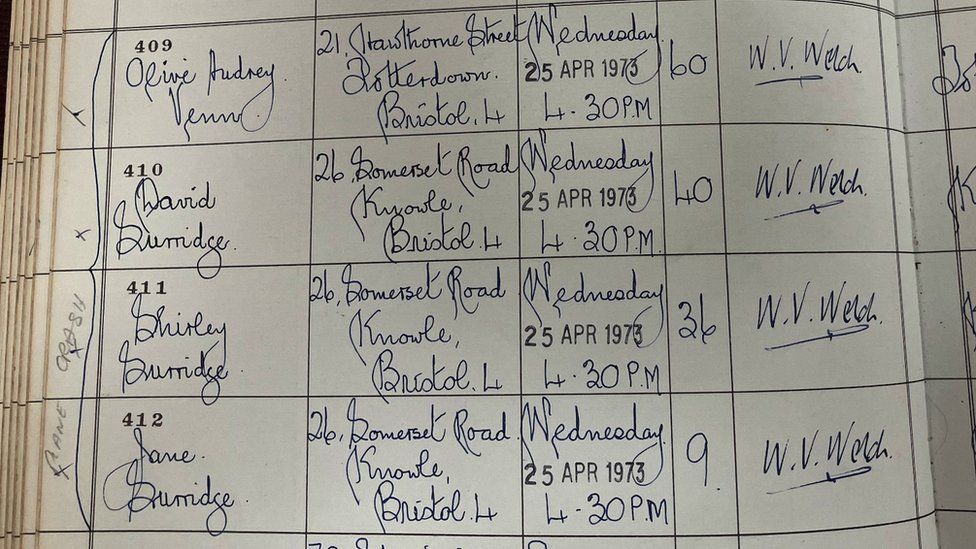 409
Olive Audrey
Venn
21, Hawthorne Street
Totterdown.
Bristol. 4
Wednesday
25 APR 1973
4.30 P.M
60
W.V. Welch.
410
David
Surridge.
26, Somerset Road
Knowle,
Bristol. 4
Wednesday
25 APR 1973
4.30 P.M.
40
W.V. Welch.
411
Shirley
Surridge.
26, Somerset Road
Knowle,
Bristol. 4
Wednesday
25 APR 1973
4.30 P.M
36
W.V. Welch.
412
Jane.
Surridge.
26, Somerset Road.
Knowle,
Bristol. 4
Wednesday.
25 APR 1973
4.30 P.M
9.
W.V. Welch.
PLANE CRASH